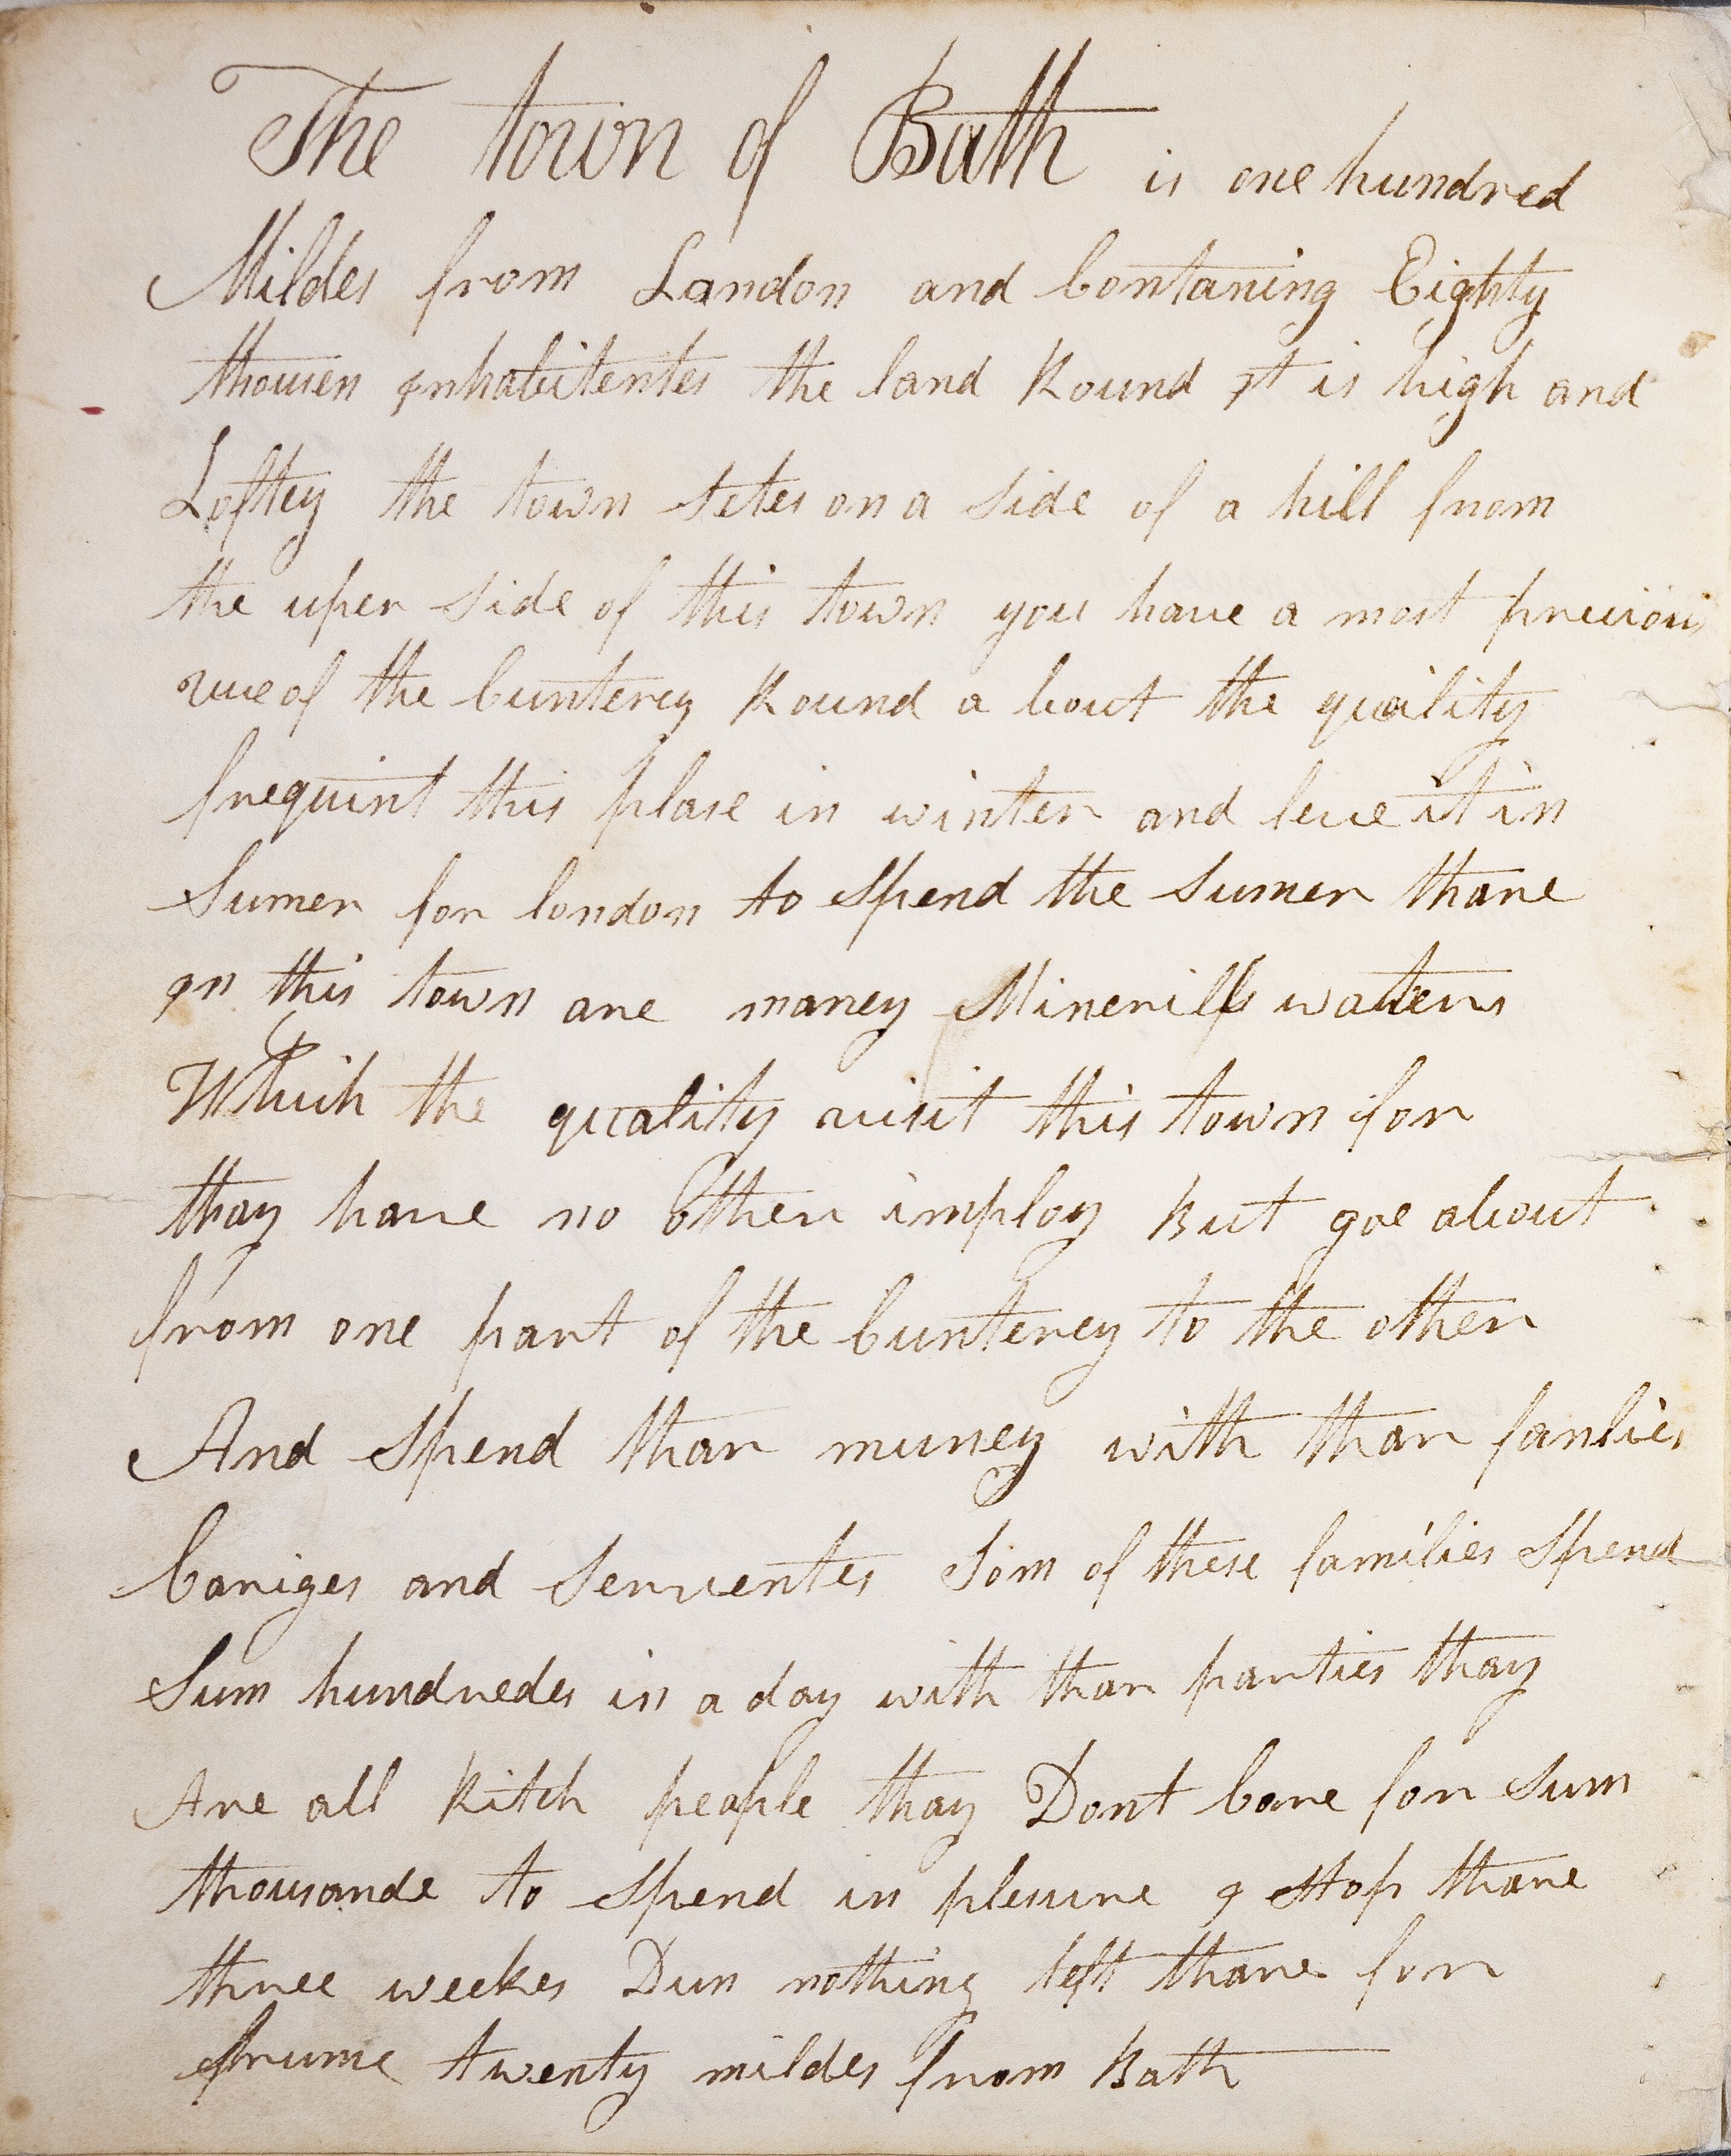 The town of Bath is one hundred
Mildes from Landon and Contaning Eighty
thousen Inhabitentes the land Round It is high and
Loftey the town setes on a side of a hill from
the uper side of this town you have a most precious
vue of the Cunterey Round a bout the quality
frequint this plase in winter and leve it in
Sumer for london to Spend the sumer thare
In this town are maney Minerills waters
Which the quality visit this town for
thay have no Other imploy But goe about
from one part of the Cunterey to the other
And Spend thar muney with thar famlies
Cariges and Serventes Som of these families Spend
Sum hundredes in a day with thar parties thay
Are all Ritch people thay Dont Care for Sum
thousande to Spend in plesure I Stop thare
three weekes Dun nothing left thare for
frume twenty mildes from Bath